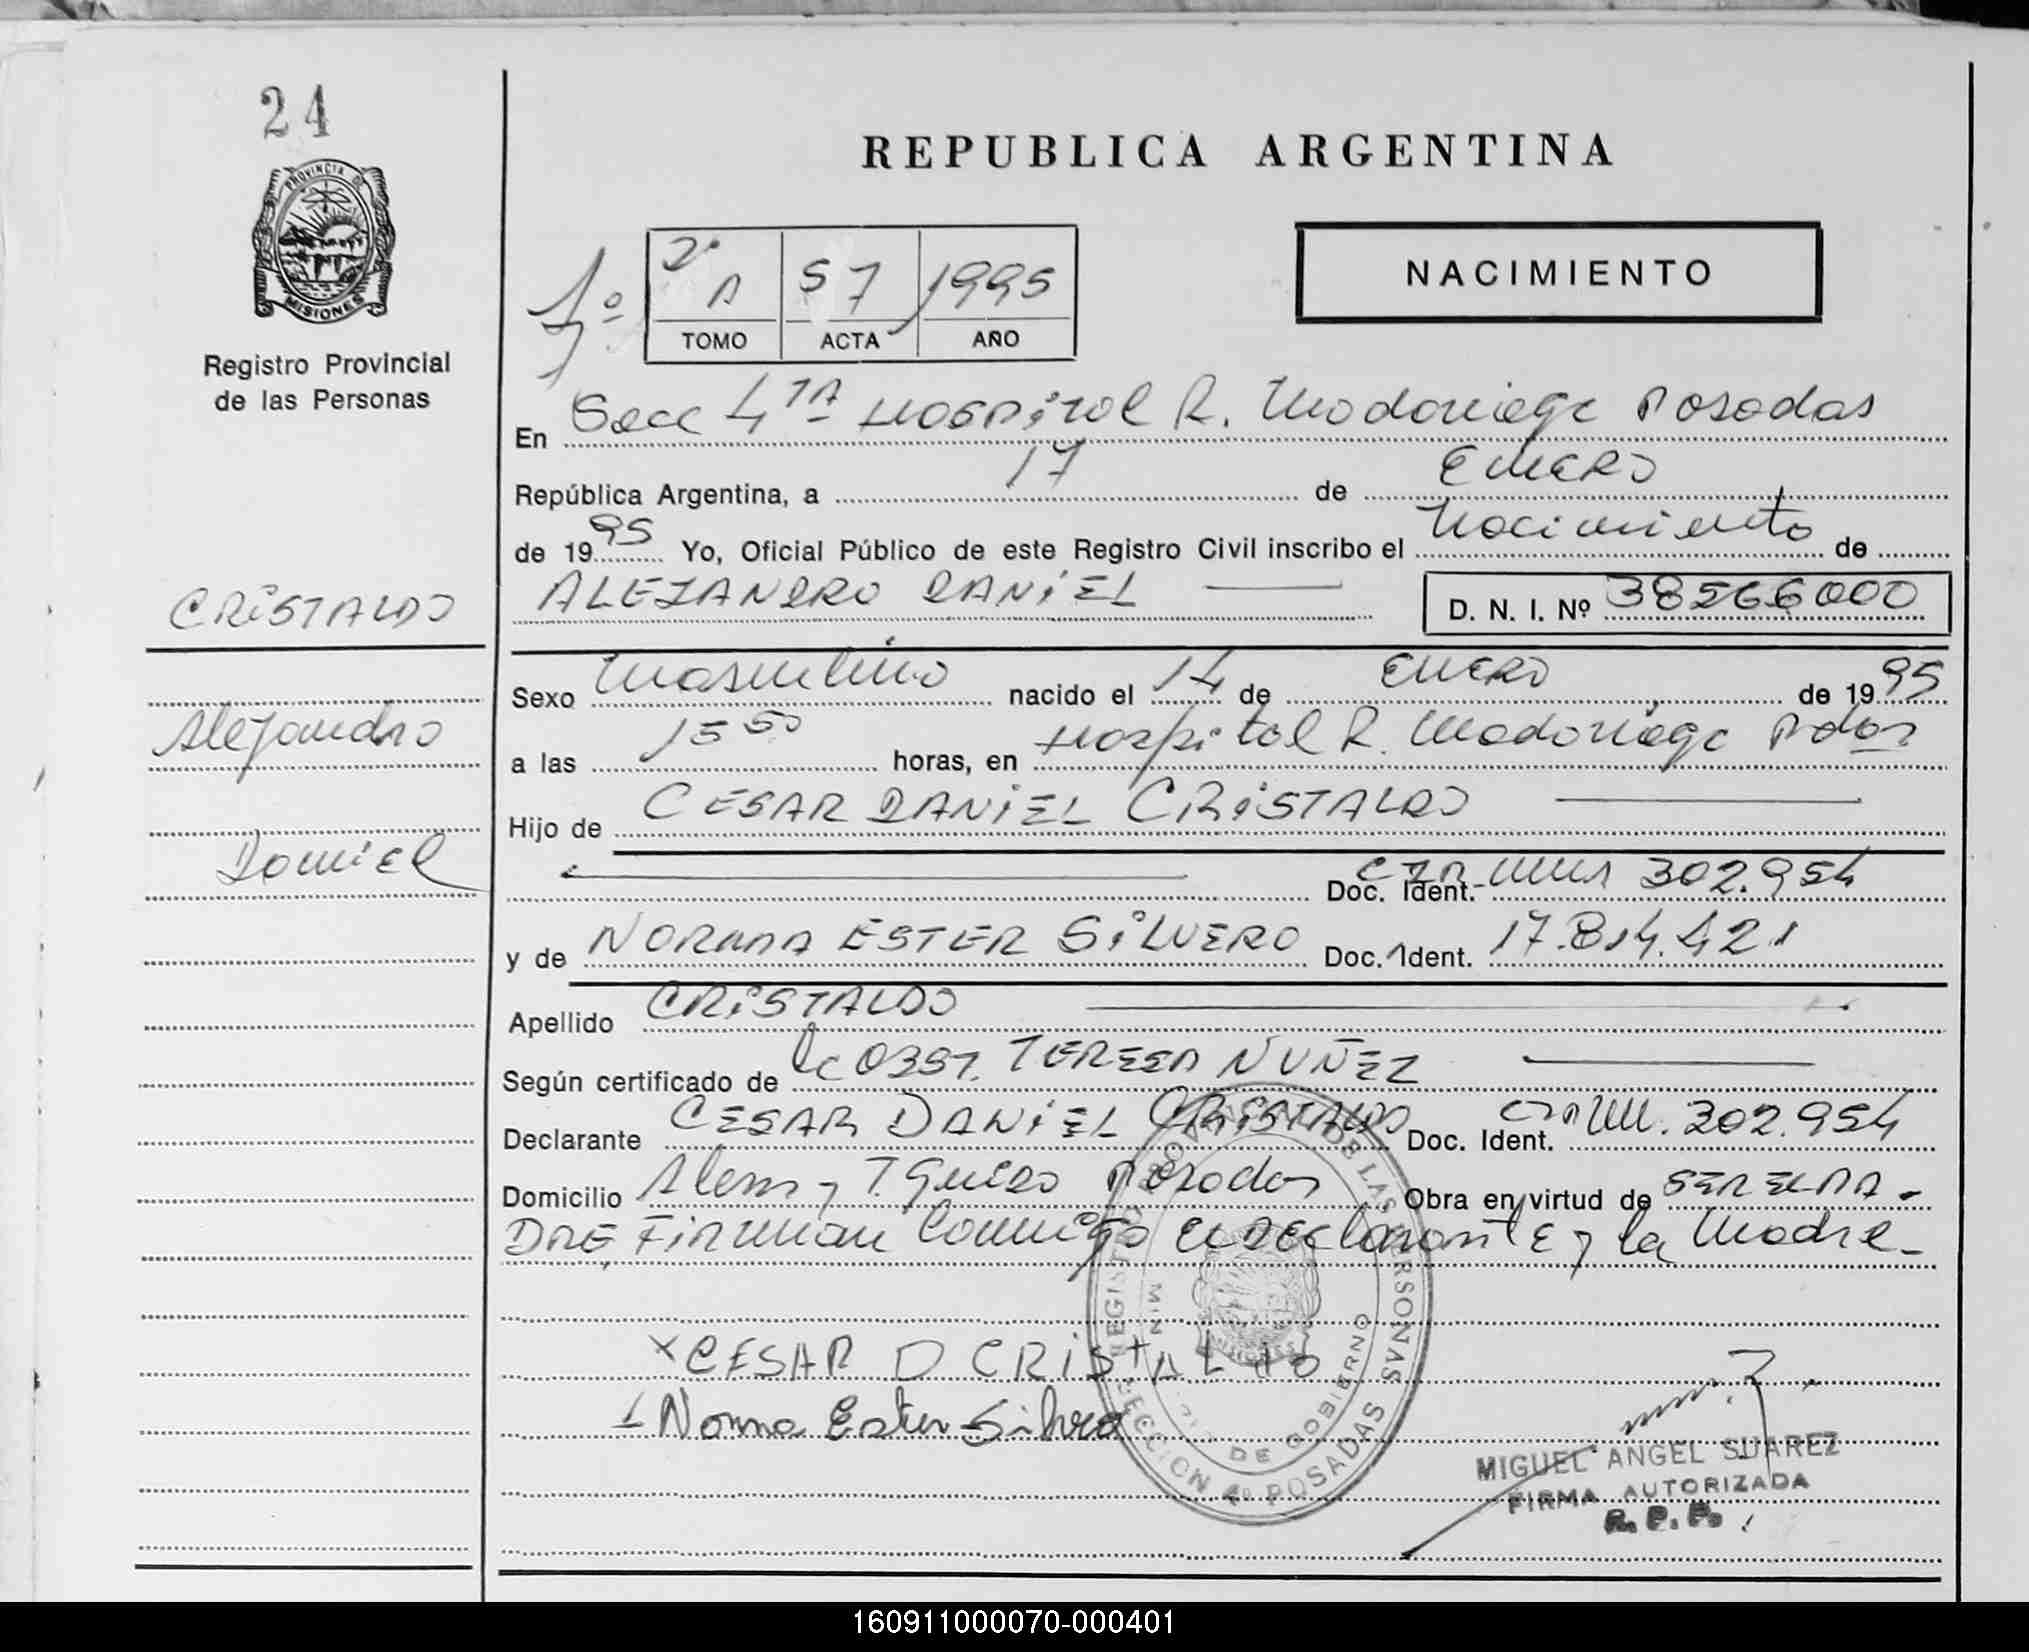 24
PROVINCIA DE
MISIONES
Registro Provincial
de las Personas
CRISTALDO
Alejandro
Daniel
REPUBLICA ARGENTINA
NACIMIENTO
1º
2º A 57 1995
TOMO ACTA AÑO
En Secc 4TA HOSPITAL R. Madariaga Posadas
República Argentina, a 17 de ENERO
de 1995 Yo, Oficial Público de este Registro Civil inscribo el Nacimiento de
ALEJANDRO DANIEL D. N. I. Nº 38566000
Sexo Masculino nacido el 14 de ENERO de 1995
a las 15 50 horas, en Hospital R. Madariaga Pdas
Hijo de CESAR DANIEL CRISTALDO
Doc. Ident. 302.954
y de NORMA ESTER SILVERO Doc. Ident. 17.814.421
Apellido CRISTALDO
Según certificado de OBST. TERESA NUÑEZ
Declarante CESAR DANIEL CRISTALDO Doc. Ident. 302.954
Domicilio Alem y Posadas Obra en virtud de SER EL PA-
DRE Firman Conmigo el DEClarante y la Madre-
REGISTRO PROVINCIAL DE LAS PERSONAS
MIN DE GOBIERNO
SECCION 4º POSADAS
x CESAR D CRISTALDO
Norma Ester Silvero
MIGUEL ANGEL SUAREZ
FIRMA AUTORIZADA
R. P. P.
160911000070-000401